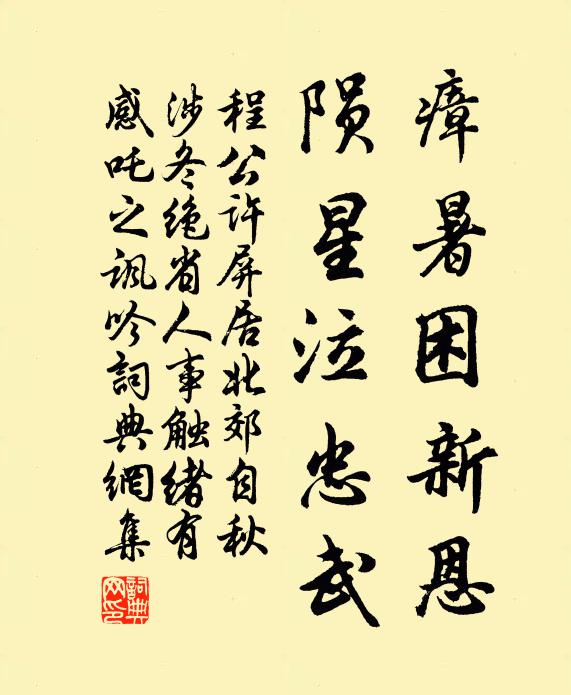 瘴暑困新恩
陨星泣忠武
程公许屏居北郊自秋
涉冬绝省人事触绪有
感吒之讽吟詞典網集
詞典網印